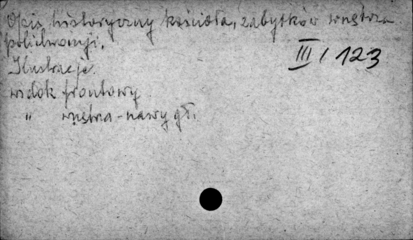 Opis historyczny kościoła, zabytków wnętrza
polichromji.
III / 123
Ilustracje:
widok frontowy
" wnętrza - nawy gł.